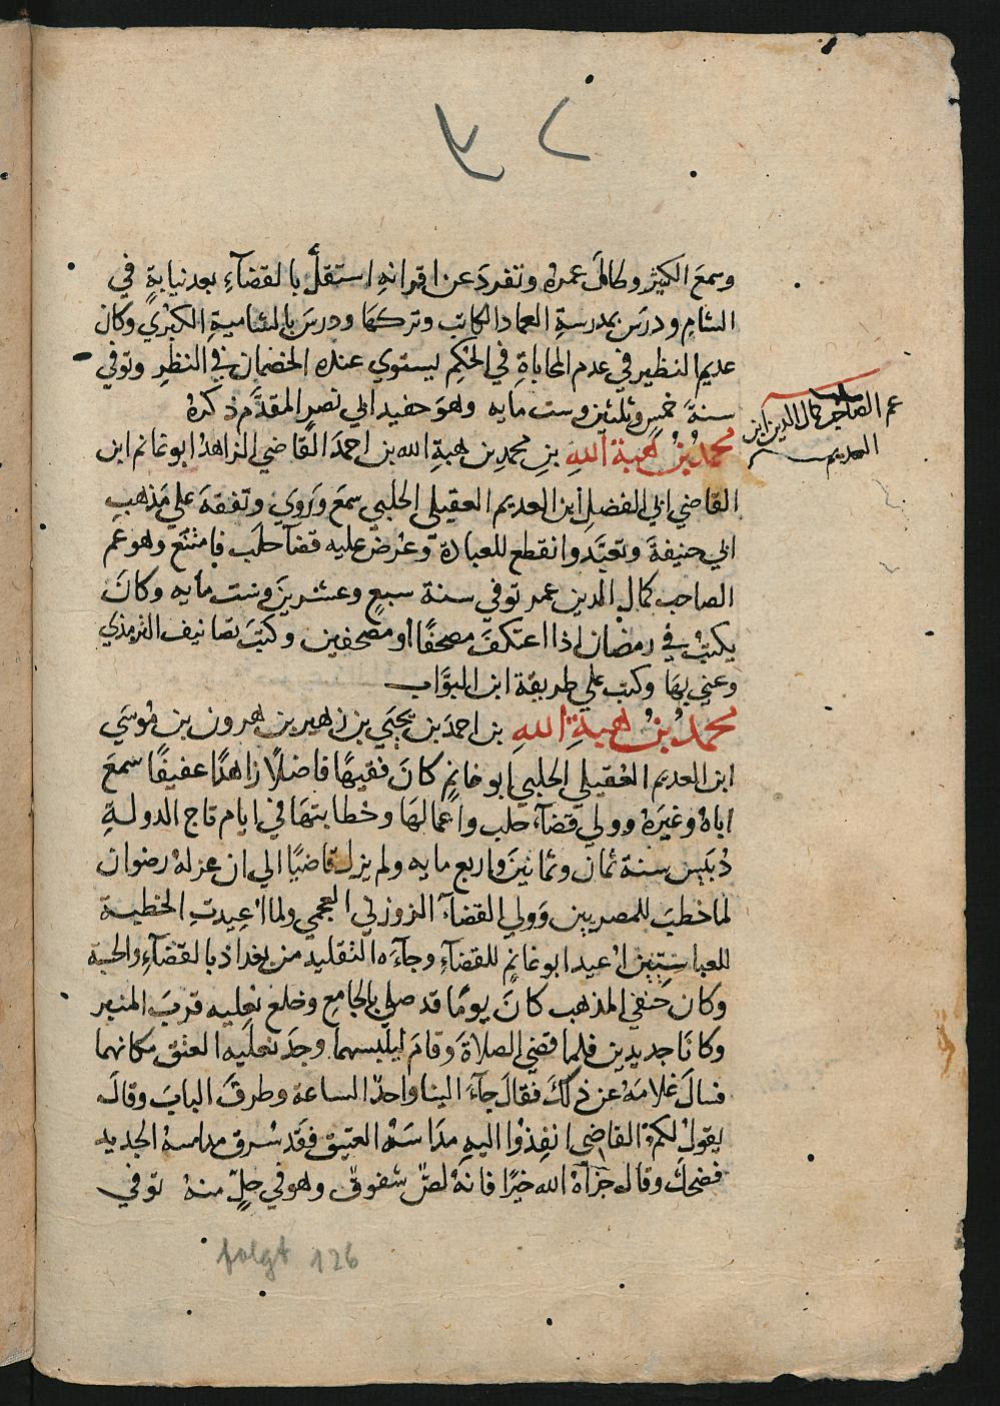 وسمعَ الكثير وطالَ عمره وتفردَ عن اقرانهِ استقلَّ بالقضآءِ بعد نيابةٍ في
الشامِ ودرسَ بمدرسةِ العماد الكاتب وتركها ودرسَ بالشاميةِ الكبري وكان
عديم النظير في عدم المحاباةِ في الحكِم يستوي عنده الخصمان في النظرِ وتوفي
سنةَ خمسٍ وثلثين وست مايه وهوَ حفيد ابي نصر المقدَّم ذكرهُ
عم الصاحب كمال الدين ابن
العديم
محمدُ بنُ هبةِ اللهِ بنِ محمدِ بن هبةِ الله بن احمدَ القاضي الزاهدُ ابو غانم ابن
القاضي ابي الفضلِ ابن العديم العقيلى الحلبي سمعَ ورَوي وتفقهَ علي مَذهبِ
ابي حنيفةَ وتعبَّد وانقطع للعبادة وعُرضَ عليه قضآ حلَب فامتنع وهو عَم
الصاحب كمالِ الدين عمر توفي سنة سبعٍ وعشرينَ وست مايه وكانَ
يكتبُ في رمضان اذا اعتكفَ مصحفًا او مصحفين وكتبَ تصانيف الترمذي
وعني بهَا وكتب علي طريقة ابن البوَّاب
محمدُ بنُ هبةِ اللهِ بن احمدَ بن يحيَي بن زهير بن هرون بن مُوسَي
ابن العديم العُقيلي الحلبي ابو غانمٍ كانَ فقيهًا فاضلًا زاهدًا عفيفًا سمعَ
اباهُ وغيَرهُ وولي قضآء حلب واعمالهَا وخطابتهَا في ايام تاج الدولةِ
دُبَيس سنة ثمان وثمانينَ واربع مايه ولم يزل قاضيًا الي ان عزلهُ رضوان
لما خطبَ للمصريين وَولي القضآءَ الزوزني العجمي ولما اُعيدتِ الخطبة
للعباسيّين اُعيد ابو غانمٍ للقضآءِ وجآءَه التقليد من بغداذ بالقضآءِ والحسبة
وكان حَنفي المذهب كانَ يومًا قد صلي بالجامعِ وخلع نعليه قربَ المنبر
وكانَا جديدين فلما قضي الصلاةَ وقامَ ليلبسهما وجدَ نعليَه العتق مكانهما
فسالَ غلامَهُ عن ذلكَ فقالَ جآءَ الينا واحدٌ الساعة وطرقَ البابَ وقالَ
يقولُ لكمُ القاضي انفِذُوا اليهِ مدَاسَهُ العتيق فقد سُرق مداسهُ الجديد
فضحكَ وقال جزآهُ الله خيرًا فانهُ لصٌّ شفوق وهو في حلٍّ منهُ توفي
folgt 126